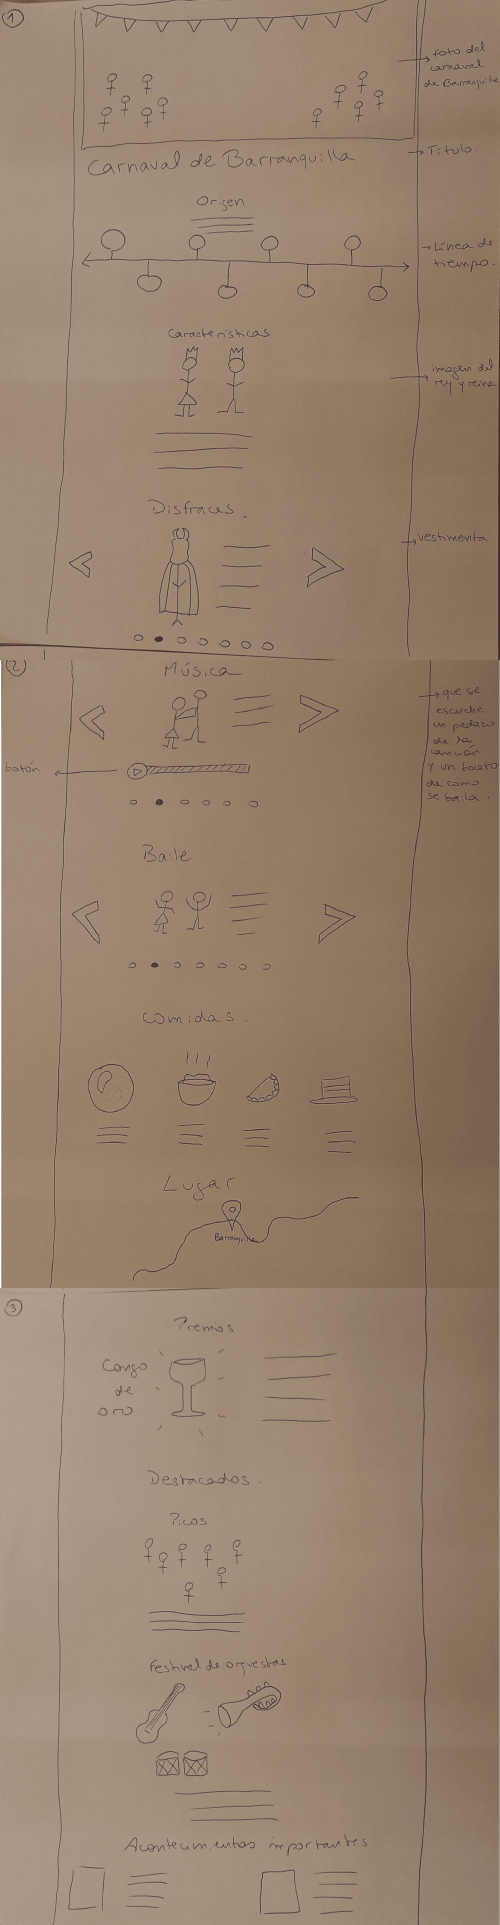 1
foto del
carnaval
de Barranquilla
Carnaval de Barranquilla
Título.
Origen
Línea de
tiempo.
Características
imagen del
rey y reina
Disfraces.
vestimenta
2
Música
que se
escuche
un pedazo
de la
canción
y un boceto
de cómo
se baila.
botón
Baile
Comidas.
Lugar
Barranquilla
3
Premios
Congo
de
oro
Destacados.
Picos
Festival de orquestas
Acontecimientos importantes